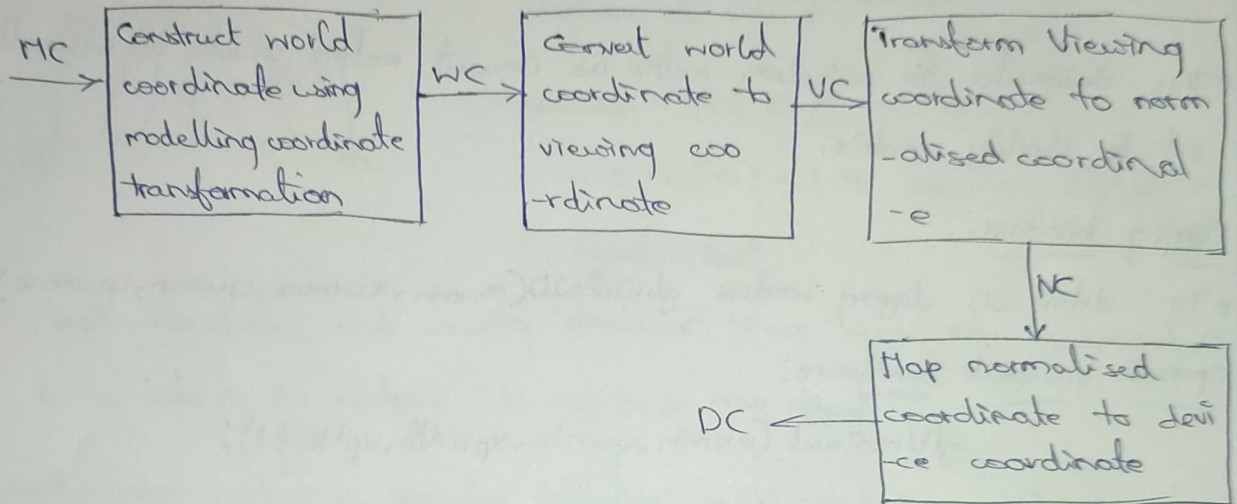 MC
Construct world
coordinate using
modelling coordinate
transformation
WC
Convert world
coordinate to
viewing coo
-rdinate
VC
Transform Viewing
coordinate to norm
-alised coordinat
-e
NC
Map normalised
coordinate to devi
-ce coordinate
DC